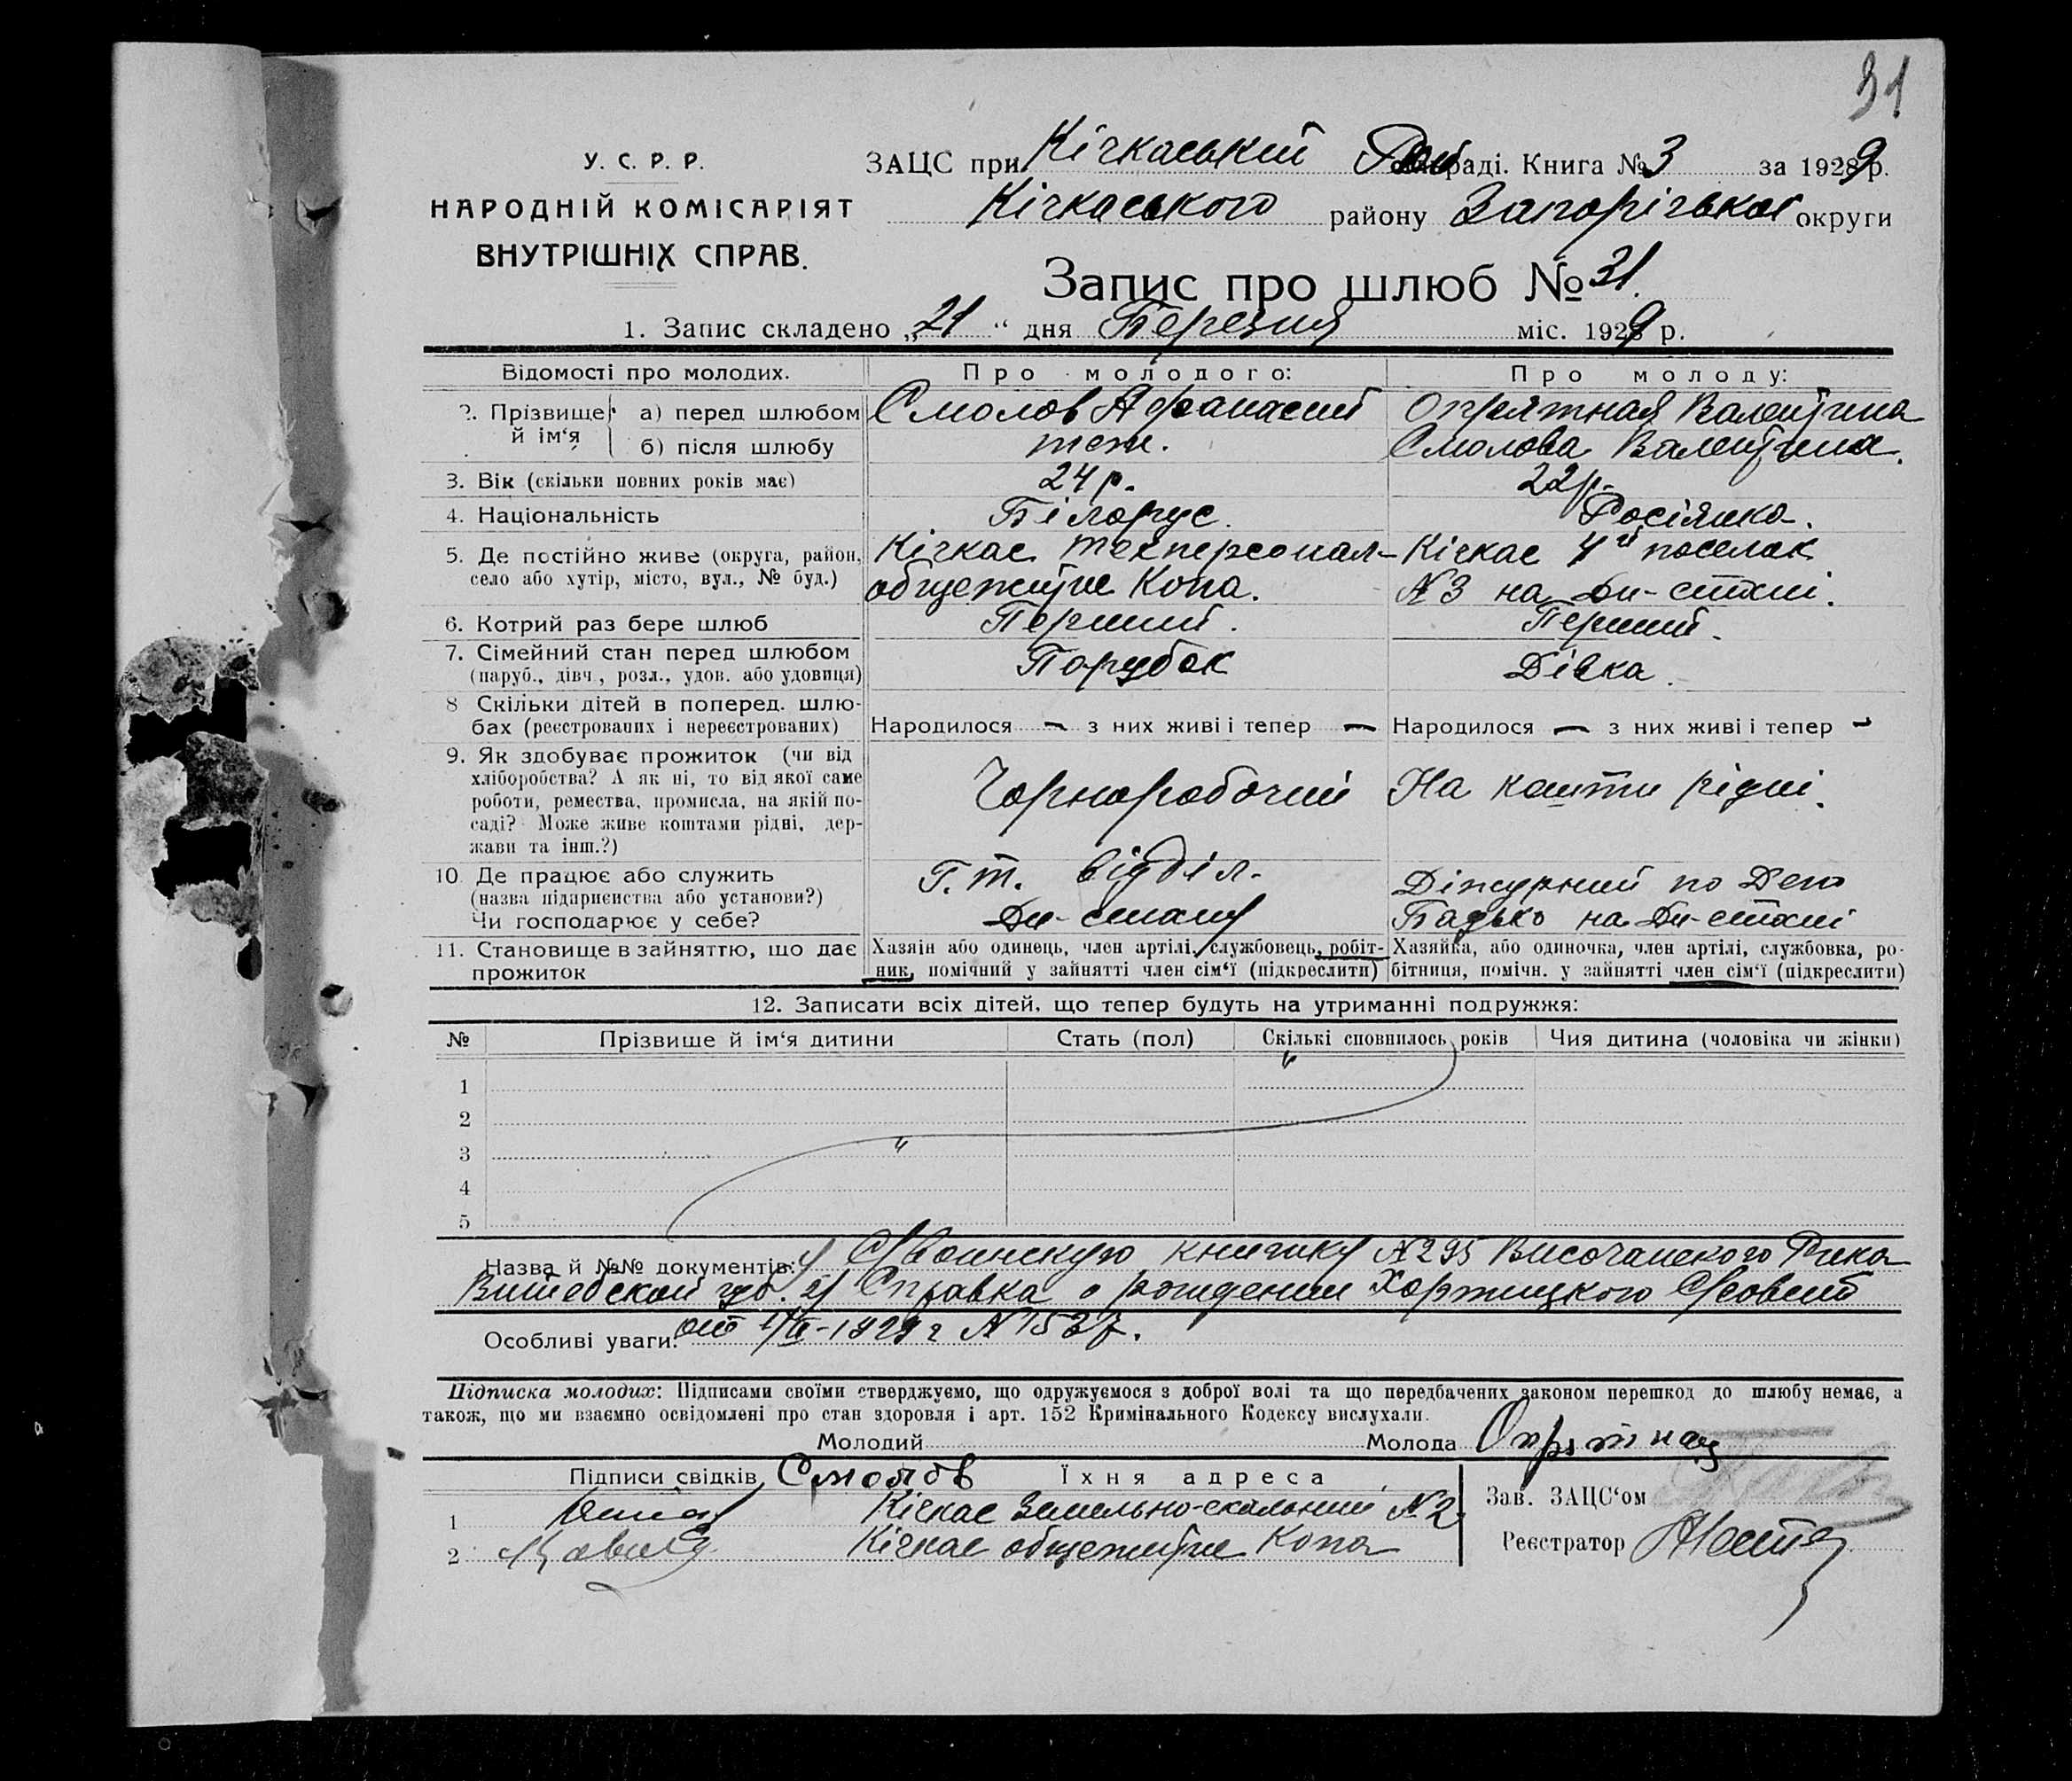 31
У. С. Р. Р.
НАРОДНІЙ КОМІСАРІЯТ
ВНУТРІШНІХ СПРАВ.
ЗАЦС при Кічкаський раді. Книга № 3 за 1929 р.
Кічкаського району Запорізької округи
Запис про шлюб № 31.
1. Запис складено „21“ дня Березня міс. 1929 р.
Відомості про молодих. Про молодого: Про молоду:
2. Прізвище й ім‘я а) перед шлюбом Смолов Афанасий Опрятная Валентина
б) після шлюбу теж. Смолова Валентина.
3. Вік (скільки повних років має) 24 р. 22 р.
4. Національність Білорус. Росіянка.
5. Де постійно живе (округа, район, Кічкас техперсонал- Кічкас 4й поселок
село або хутір, місто, вул., № буд.) общежитие Копа. №3 на Дн-стані.
6. Котрий раз бере шлюб Перший. Перший.
7. Сімейний стан перед шлюбом Порубок Дівка.
(паруб., дівч., розл., удов. або удовиця)
8 Скільки дітей в поперед. шлю-
бах (реєстрованих і нереєстрованих) Народилося — з них живі і тепер — Народилося — з них живі і тепер —
9. Як здобуває прожиток (чи від
хліборобства? А як ні, то від якої саме
роботи, ремества, промисла, на якій по- Чорноробочий На кошти рідні.
саді? Може живе коштами рідні, дер-
жави та інш.?)
10. Де працює або служить Г. т. відділ. Діжурний по Депо
(назва підприєнства або установи?)
Чи господарює у себе? Дн-стану Бадько на Дн-стані
11. Становище в зайняттю, що дає Хазяїн або одинець, член артілі, службовець, робіт- Хазяйка, або одиночка, член артілі, службовка, ро-
прожиток ник, помічний у зайнятті член сім‘ї (підкреслити) бітниця, помічн. у зайнятті член сім‘ї (підкреслити)
12. Записати всіх дітей, що тепер будуть на утриманні подружжя:
№ Прізвише й ім‘я дитини Стать (пол) Скількі сповнилось років Чия дитина (чоловіка чи жінки)
1
2
3
4
5
Назва й №№ документів: воинскую книжку №295 Височанского Рика
Витебской губ. 2) Справка о рождении Хортицкого
Особливі уваги: от 1929 г №1537.
Підписка молодих: Підписами своїми стверджуємо, що одружуємося з доброї волі та що передбачених законом перешкод до шлюбу немає, а
також, що ми взаємно освідомлені про стан здоровля і арт. 152 Кримінального Кодексу вислухали.
Молодий Молода Опрятная
Підписи свідків Смолов Їхня адреса
1 Кічкас Земельно-скальний №2 Зав. ЗАЦС‘ом
2 Кічкас общежитие Копа Реєстратор